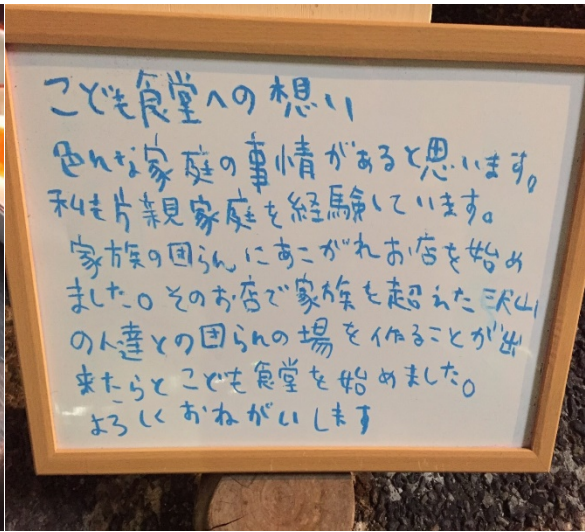 こども食堂への想い
色んな家庭の事情があると思います。
私も片親家庭を経験しています。
家族の団らんにあこがれお店を始め
ました。そのお店で家族を超えた沢山
の人達との団らんの場を作ることが出
来たらとこども食堂を始めました。
よろしくおねがいします